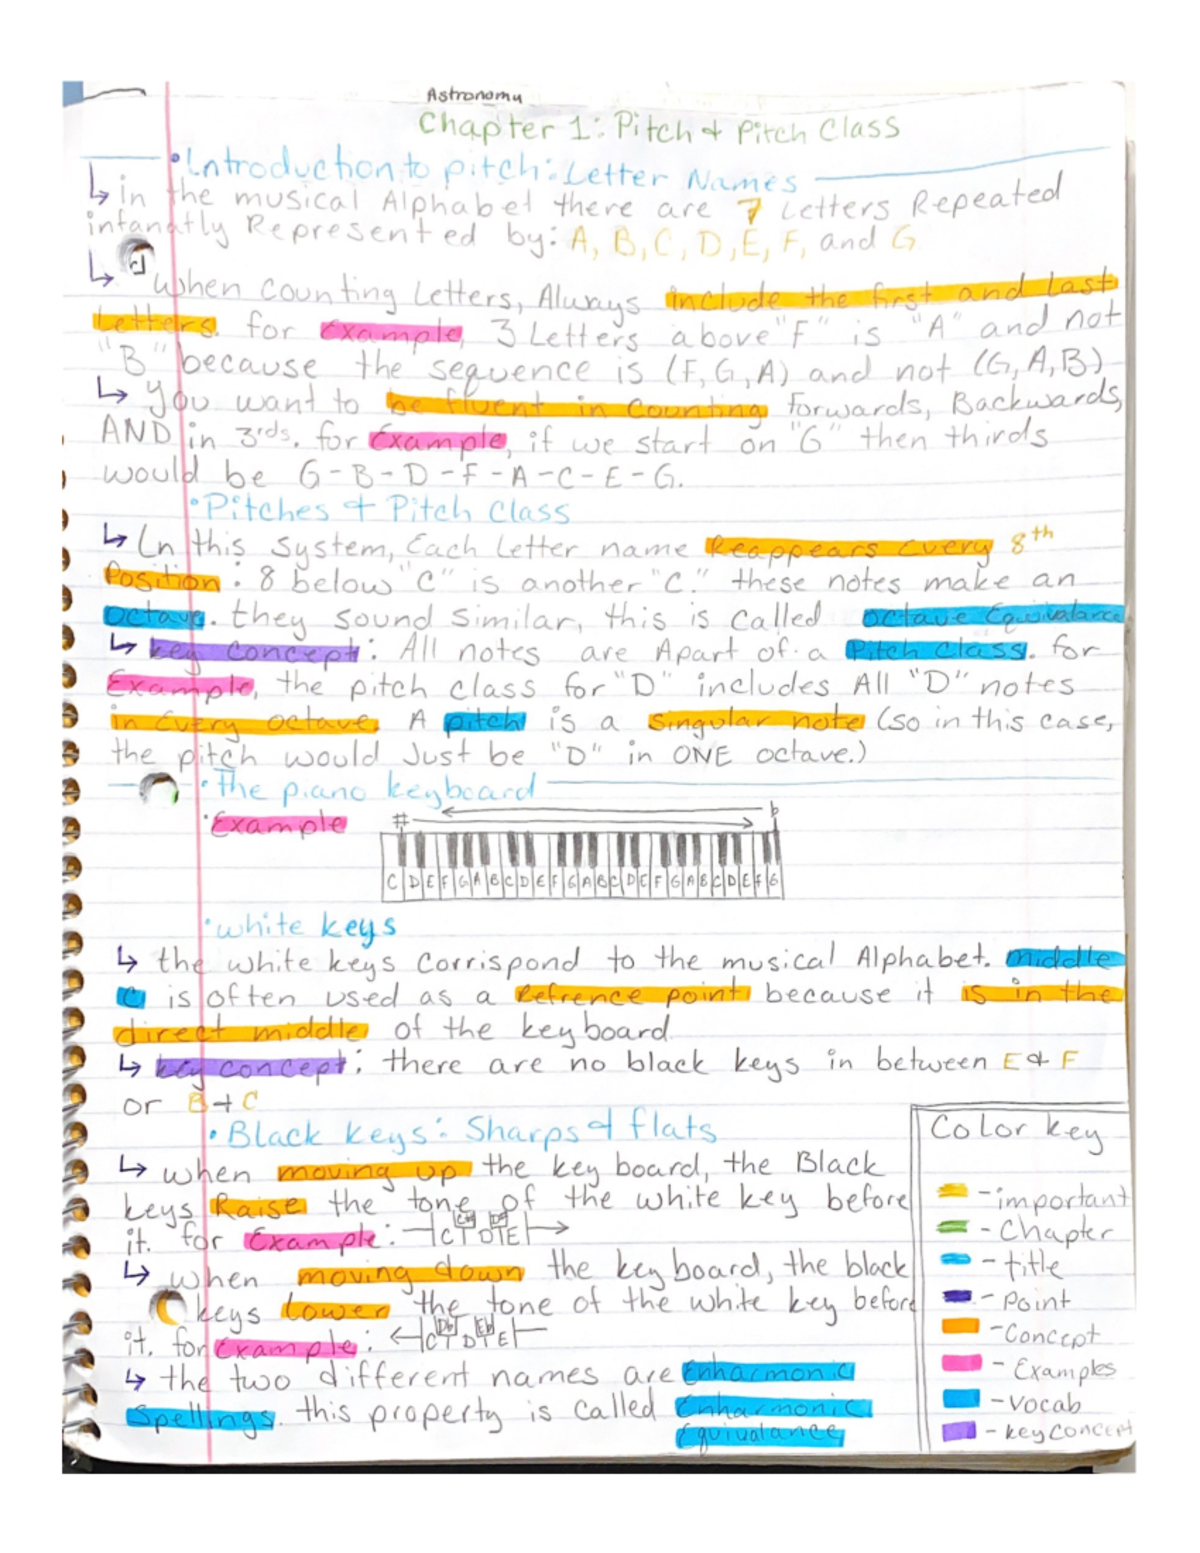 Astronomy
Chapter 1: Pitch & Pitch Class
•Introduction to pitch: Letter Names
↳ in the musical Alphabet there are 7 Letters Repeated
infanatly Represented by: A, B, C, D, E, F, and G
↳ When counting Letters, Always include the first and Last
Letters. for Example, 3 Letters above "F" is "A" and not
"B" because the sequence is (F, G, A) and not (G, A, B)
↳ You want to be fluent in Counting forwards, Backwards,
AND in 3rds. for Example, if we start on "G" then thirds
would be G-B-D-F-A-C-E-G.
•Pitches & Pitch Class
↳ In this System, Each Letter name Reappears Every 8th
Position: 8 below "C" is another "C." these notes make an
octave. they sound Similar, this is called octave Equivalance
↳ key Concept: All notes are Apart of a Pitch Class. for
Example, the pitch class for "D" includes All "D" notes
in Every octave. A pitch is a Singular note (so in this case,
the pitch would Just be "D" in ONE octave.)
•The piano keyboard
•Example
# b
C D E F G A B C D E F G A B C D E F G A B C D E F G
•white keys
↳ the white keys Corrispond to the musical Alphabet. middle
C is often used as a Refrence point because it is in the
direct middle of the keyboard
↳ key concept: there are no black keys in between E & F
or B & C
•Black keys: Sharps & flats
↳ when moving up the keyboard, the Black
keys Raise the tone of the white key before
it. for Example: C C# D D# E
↳ when moving down the keyboard, the black
keys Lower the tone of the white key before
it. for Example: C Db D Eb E
↳ the two different names are Enharmonic
Spellings. this property is called Enharmonic
Equivalance
Color key
- important
- Chapter
- title
- Point
- Concept
- Examples
- Vocab
- key Concept